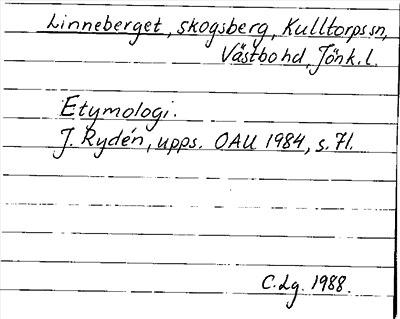 Linneberget, skogsberg, Kulltorps sn,
Västbo hd, Jönk.l.
Etymologi.
J. Rydén, upps. OAU 1984, s. 71.
C.Lg. 1988.